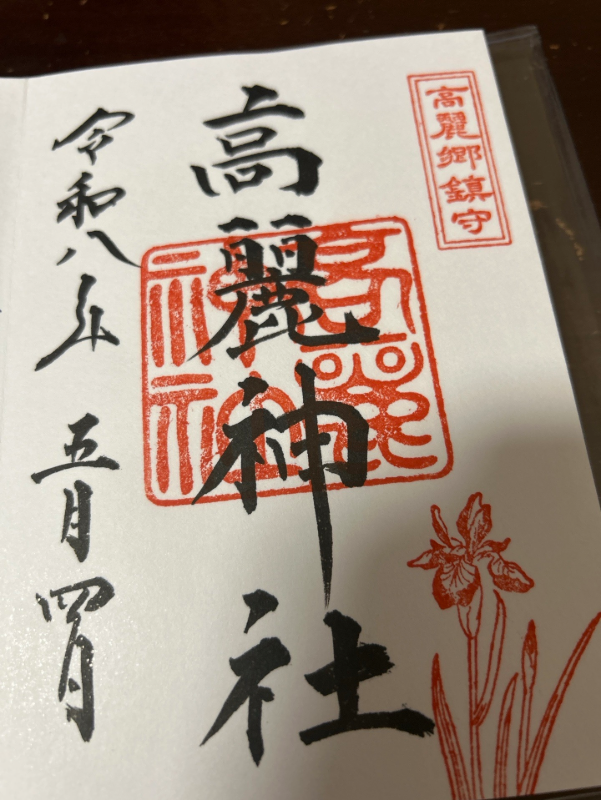 高麗郷鎮守
高麗神社
高麗
神社
令和八年 五月四日